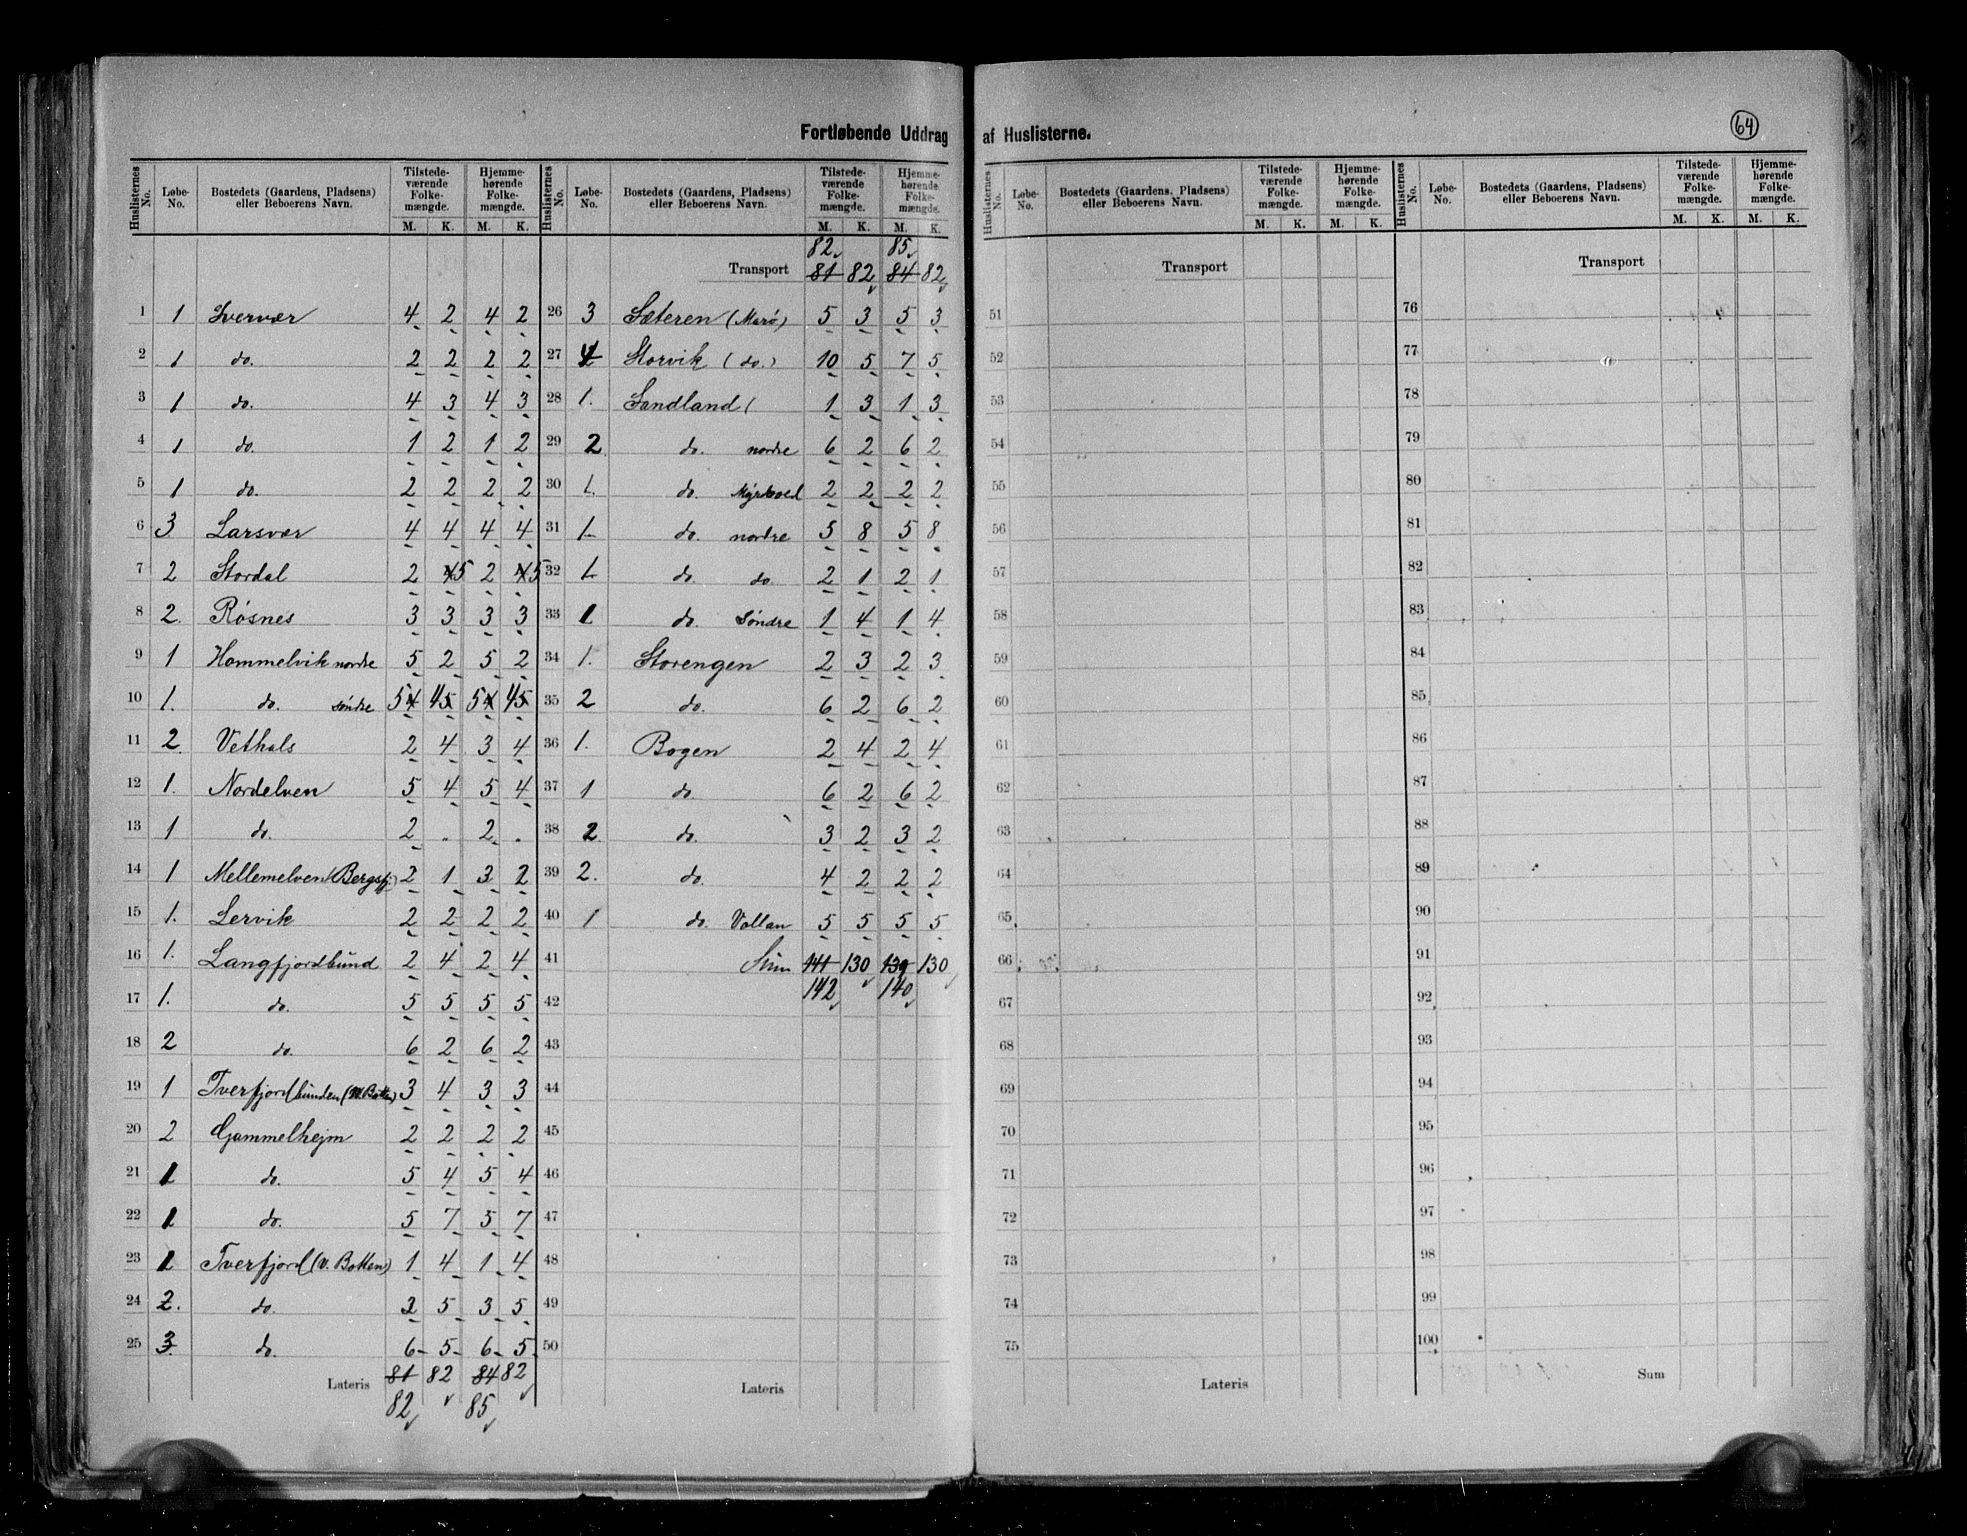 Fortløbende Uddrag af Huslisterne.
64
Huslisternes No. | Løbe-No. | Bostedets (Gaardens, Pladsens) eller Beboerens Navn. | Tilstedeværende Folkemængde. M. K. | Hjemmehørende Folkemængde. M. K.
1 1 Svervær 4 2 4 2
2 1 do. 2 2 2 2
3 1 do. 4 3 4 3
4 1 do. 1 2 1 2
5 1 do. 2 2 2 2
6 3 Larsvær 4 4 4 4
7 2 Stordal 2 4 5 2 4 5
8 2. Røsnes 3 3 3 3
9 1 Hammelvik nordre 5 2 5 2
10 1. do. søndre 5 4 4 5 5 4 4 5
11 2. Vethals 2 4 3 4
12 1. Nordelven 5 4 5 4
13 1 do. 2 . 2 .
14 1 Mellemelven (Bergsfj.) 2 1 3 2
15 1. Lervik 2 2 2 2
16 1. Langfjordbund 2 4 2 4
17 1. do. 5 5 5 5
18 2 do. 6 2 6 2
19 1 Tverfjordbunden 3 4 3 3
20 2 Gammelhejm 2 2 2 2
21 1 do. 5 4 5 4
22 1 do. 5 7 5 7
23 1 Tverfjord (v. Botten) 1 4 1 4
24 2. do. 2 5 3 5
25 3. do. 6 5 6 5
Lateris 81 82 84 82
82 85
Huslisternes No. | Løbe-No. | Bostedets (Gaardens, Pladsens) eller Beboerens Navn. | Tilstedeværende Folkemængde. M. K. | Hjemmehørende Folkemængde. M. K.
82 85
Transport 81 82 84 82
26 3 Sæteren (Marø) 5 3 5 3
27 4 Storvik (do.) 10 5 7 5
28 1. Sandland ( 1 3 1 3
29 2 do. nordre 6 2 6 2
30 1. do. 2 2 2 2
31 1. do. nordre 5 8 5 8
32 1. do. do. 2 1 2 1
33 1 do. Søndre 1 4 1 4
34 1. Storengen 2 3 2 3
35 2 do. 6 2 6 2
36 1. Bogen 2 4 2 4
37 1 do. 6 2 6 2
38 2 do. 3 2 3 2
39 2. do. 4 2 2 2
40 1 do. Vollan 5 5 5 5
41 Sum 141 130 139 130
42 142 140
43
44
45
46
47
48
49
50
Lateris
Huslisternes No. | Løbe-No. | Bostedets (Gaardens, Pladsens) eller Beboerens Navn. | Tilstedeværende Folkemængde. M. K. | Hjemmehørende Folkemængde. M. K.
Transport
51
52
53
54
55
56
57
58
59
60
61
62
63
64
65
66
67
68
69
70
71
72
73
74
75
Lateris
Huslisternes No. | Løbe-No. | Bostedets (Gaardens, Pladsens) eller Beboerens Navn. | Tilstedeværende Folkemængde. M. K. | Hjemmehørende Folkemængde. M. K.
Transport
76
77
78
79
80
81
82
83
84
85
86
87
88
89
90
91
92
93
94
95
96
97
98
99
100
Sum